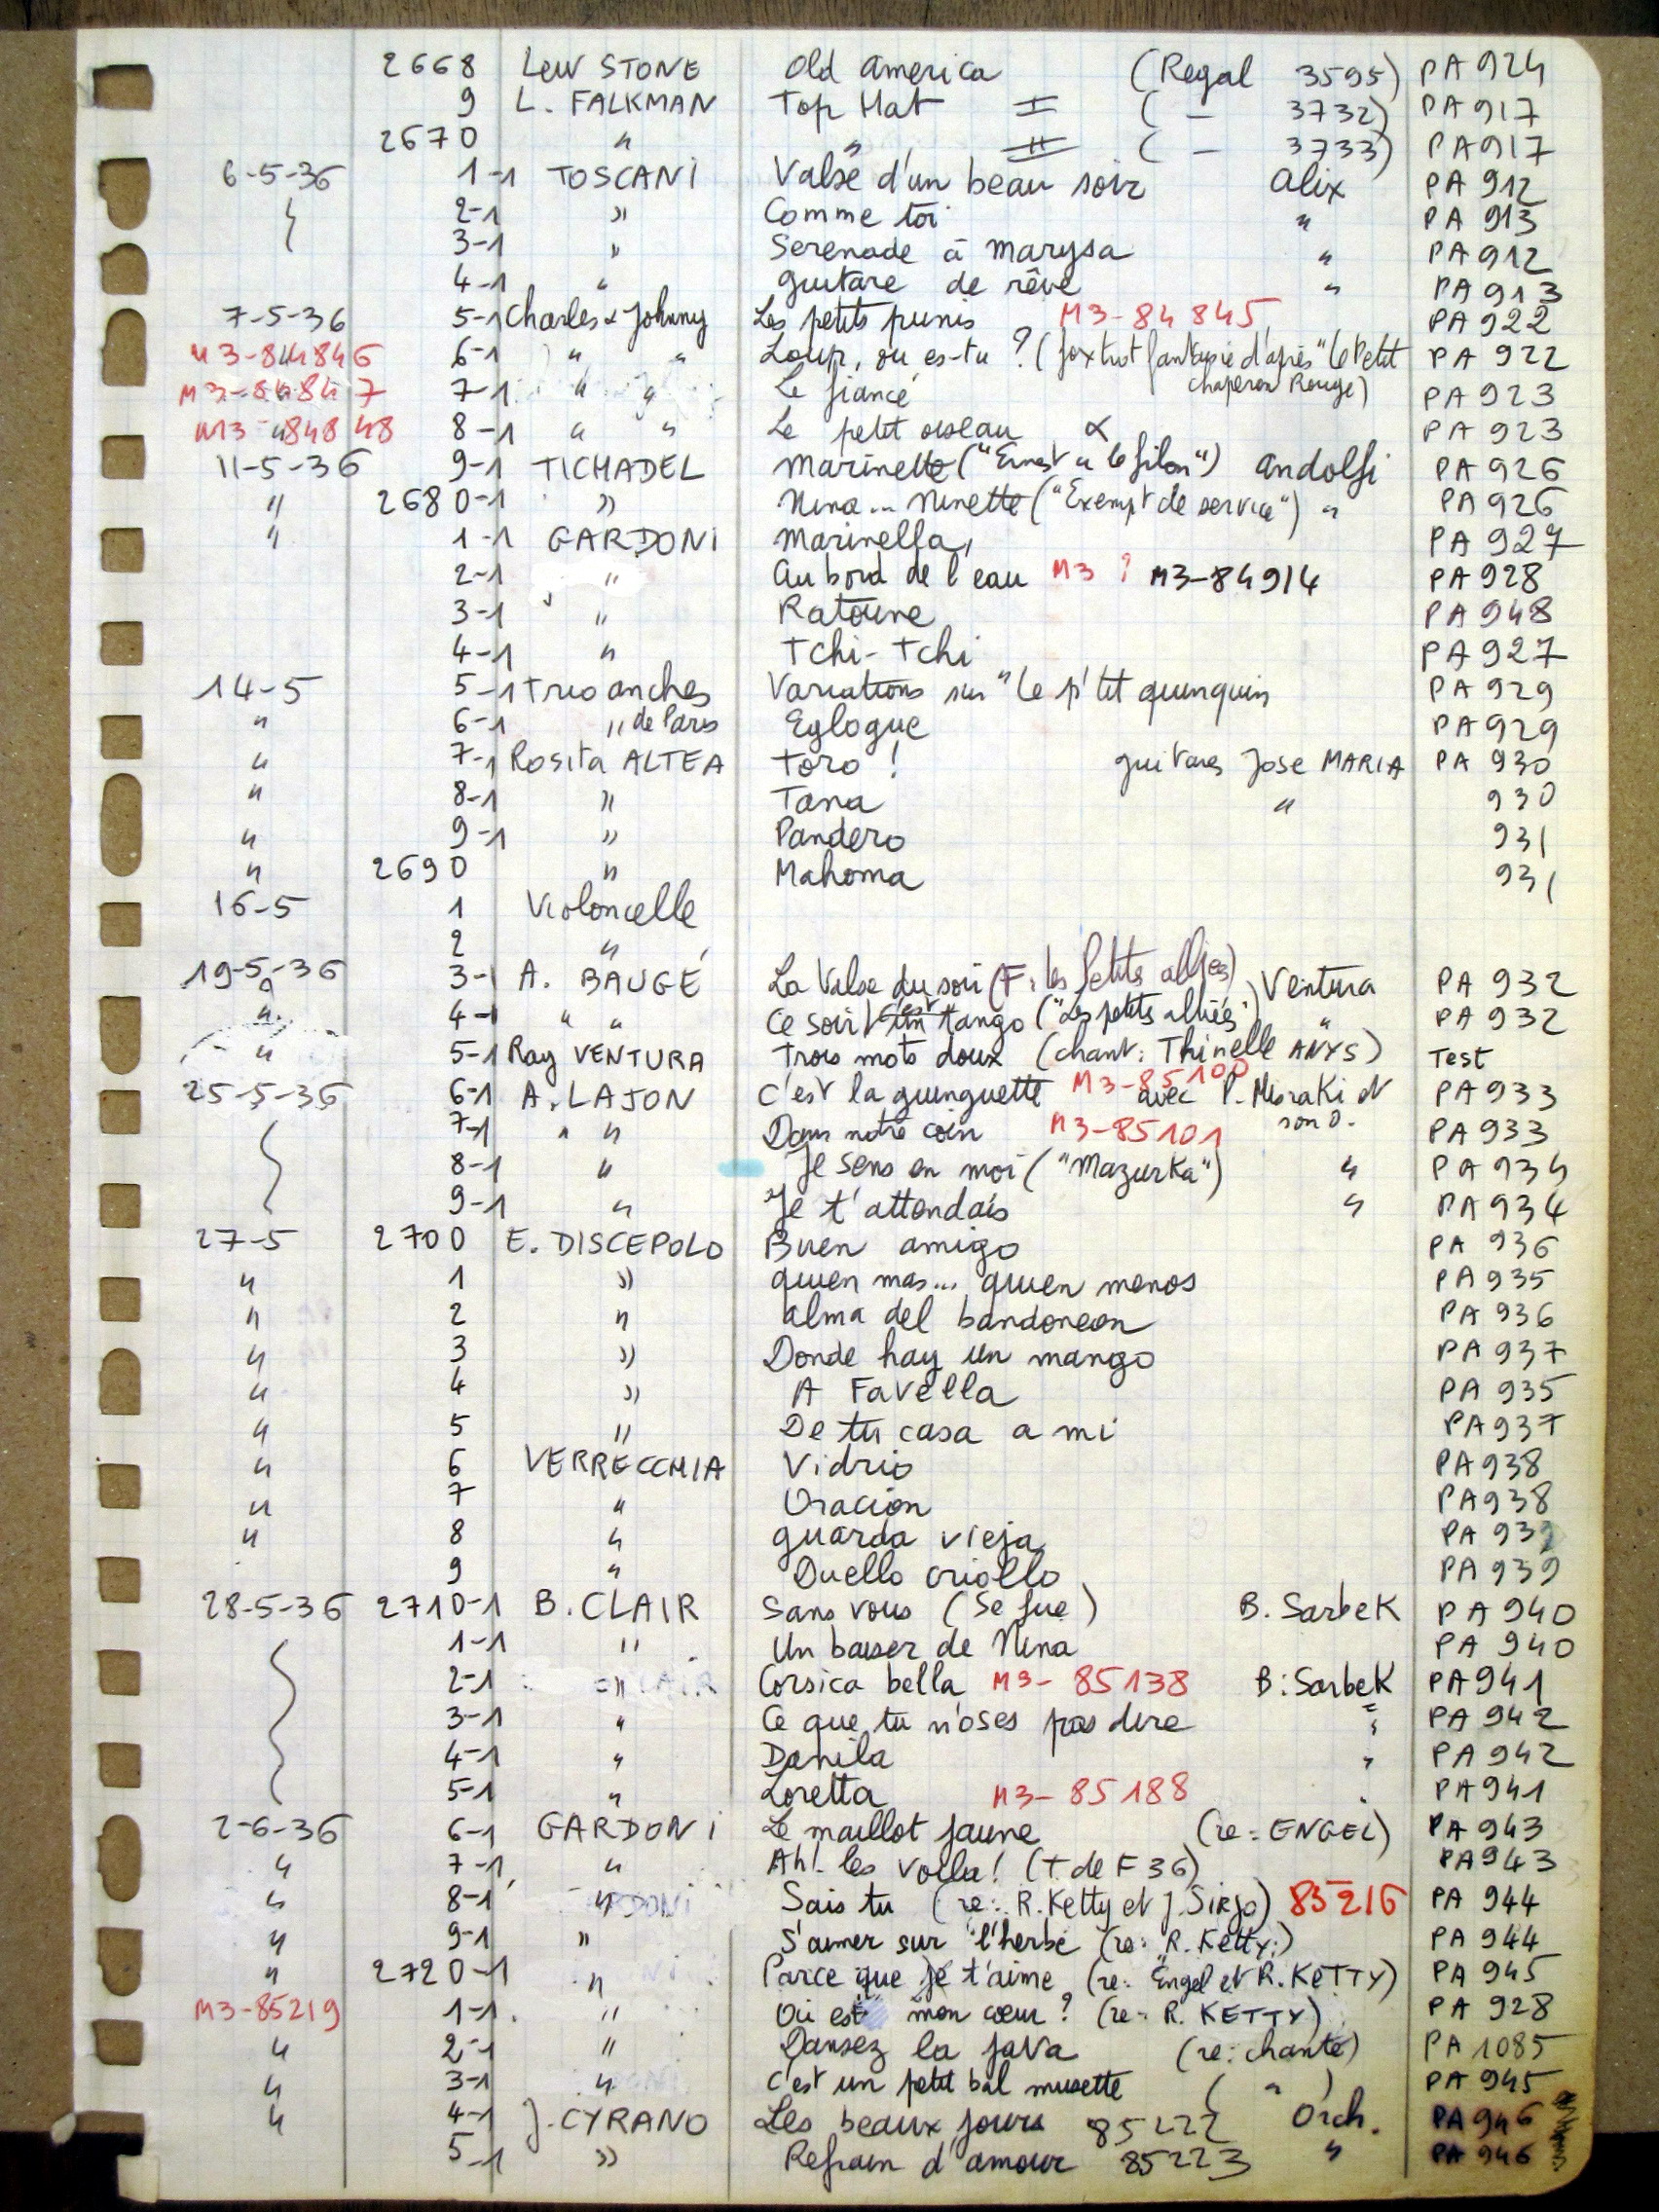 2668 Lew STONE Old America (Regal 3595) PA 924
9 L. FALKMAN Top Hat I ( — 3732) PA 917
2670 " " II ( — 3733) PA 917
6-5-36 1-1 TOSCANI Valse d'un beau soir Alix PA 912
2-1 " Comme toi " PA 913
3-1 " Serenade à Marysa " PA 912
4-1 " guitare de rêve " PA 913
7-5-36 5-1 Charles & Johnny Les petits punis M3-84845 PA 922
M3-84846 6-1 " " Loup, ou es-tu ? (foxtrot fantaisie d'après "le Petit PA 922
chaperon Rouge)
M3-84847 7-1 " " Le fiancé PA 923
M3-84848 8-1 " " Le petit oiseau PA 923
11-5-36 9-1 TICHADEL Marinette ("Ernest a le filon") Andolfi PA 926
" 2680-1 " Nina... Ninette ("Exempt de service") " PA 926
" 1-1 GARDONI Marinella PA 927
2-1 " Au bord de l'eau M3 ? M3-84914 PA 928
3-1 " Ratoune PA 948
4-1 " Tchi-Tchi PA 927
14-5 5-1 Trio anches Variations sur "le p'tit quinquin PA 929
" 6-1 " de Paris Eglogue PA 929
" 7-1 Rosita ALTEA Toro ! guitares Jose MARIA PA 930
" 8-1 " Tana " 930
" 9-1 " Pandero 931
" 2690 " Mahoma 931
16-5 1 Violoncelle
2 "
19-5-36 3-1 A. BAUGÉ La Valse du soir (F: les Petits alliés) Ventura PA 932
" 4-1 " " Ce soir c'est tango ("Les petits alliés") " PA 932
" 5-1 Ray VENTURA Trois mots doux (chant: Thinelle ANYS) Test
25-5-36 6-1 A. LAJON C'est la guinguette M3-85100 avec P. Misraki et PA 933
son O.
7-1 " " Dans notre coin M3-85101 PA 933
8-1 " Je sens en moi ("Mazurka") " PA 934
9-1 " Je t'attendais " PA 934
27-5 2700 E. DISCEPOLO Buen amigo PA 936
" 1 " quien mas... quien menos PA 935
" 2 " alma del bandoneon PA 936
" 3 " Donde hay un mango PA 937
" 4 " A Favella PA 935
" 5 " De tu casa a mi PA 937
" 6 VERRECCHIA Vidrio PA 938
" 7 " Oracion PA 938
" 8 " guarda vieja PA 939
9 " Duello criollo PA 939
28-5-36 2710-1 B. CLAIR Sans vous (Se fue) B. Sarbek PA 940
1-1 " Un baiser de Nina PA 940
2-1 " Corsica bella M3-85138 B. Sarbek PA 941
3-1 " Ce que tu n'oses pas dire " PA 942
4-1 " Danila " PA 942
5-1 " Loretta M3-85188 PA 941
2-6-36 6-1 GARDONI Le maillot jaune (re: ENGEL) PA 943
" 7-1 " Ah! les voila! (T. de F 36) PA 943
" 8-1 " Sais tu (re: R. Ketty et J. Sirjo) 85216 PA 944
" 9-1 " S'aimer sur l'herbe (re: R. Ketty) PA 944
" 2720-1 " Parce que je t'aime (re: Engel et R. KETTY) PA 945
M3-85219 1-1 " Où est mon cœur ? (re: R. KETTY) PA 928
" 2-1 " Dansez la java (re: chanté) PA 1085
" 3-1 " C'est un petit bal musette ( " ) PA 945
" 4-1 J. CYRANO Les beaux jours 85222 Orch. PA 946
5-1 " Refrain d'amour 85223 " PA 946